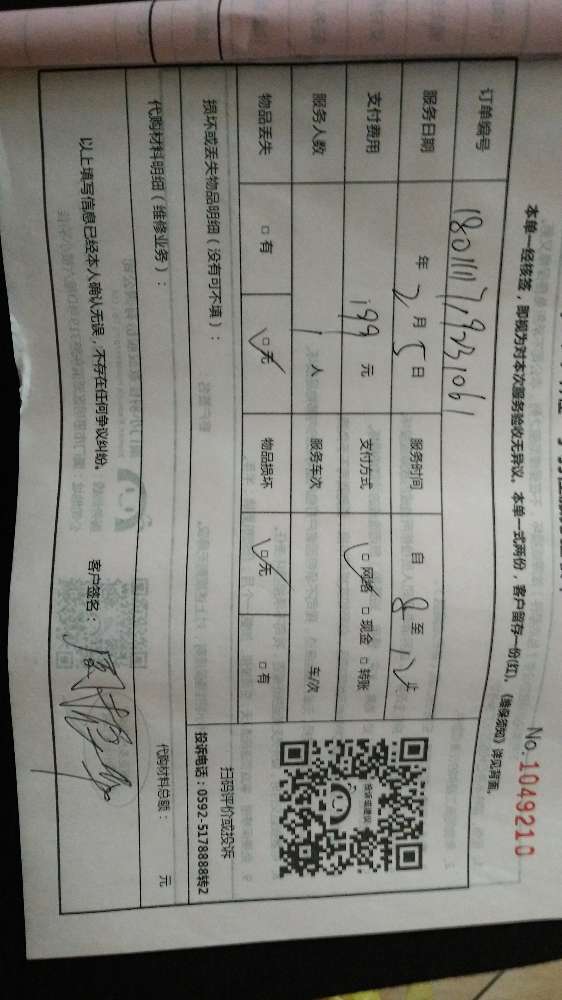 本单一经核签，即视为对本次服务验收无异议。本单一式两份，客户留存一份(红)。《维保须知》详见背面。
No.1049210
订单编号
服务日期 年 2 月 5 日 服务时间 自 8 至 12 止
支付费用 199 元 支付方式 □ 网络 □ 现金 □ 转账
服务人数 1 人 服务车次 车/次
物品丢失 □ 有 □ 无 物品损坏 □ 无 □ 有
投诉或建议
扫码评价或投诉
投诉电话：0592-5178888转2
损坏或丢失物品明细（没有可不填）：
代购材料明细（维修业务）： 代购材料总额： 元
以上填写信息已经本人确认无误，不存在任何争议纠纷。 客户签名：